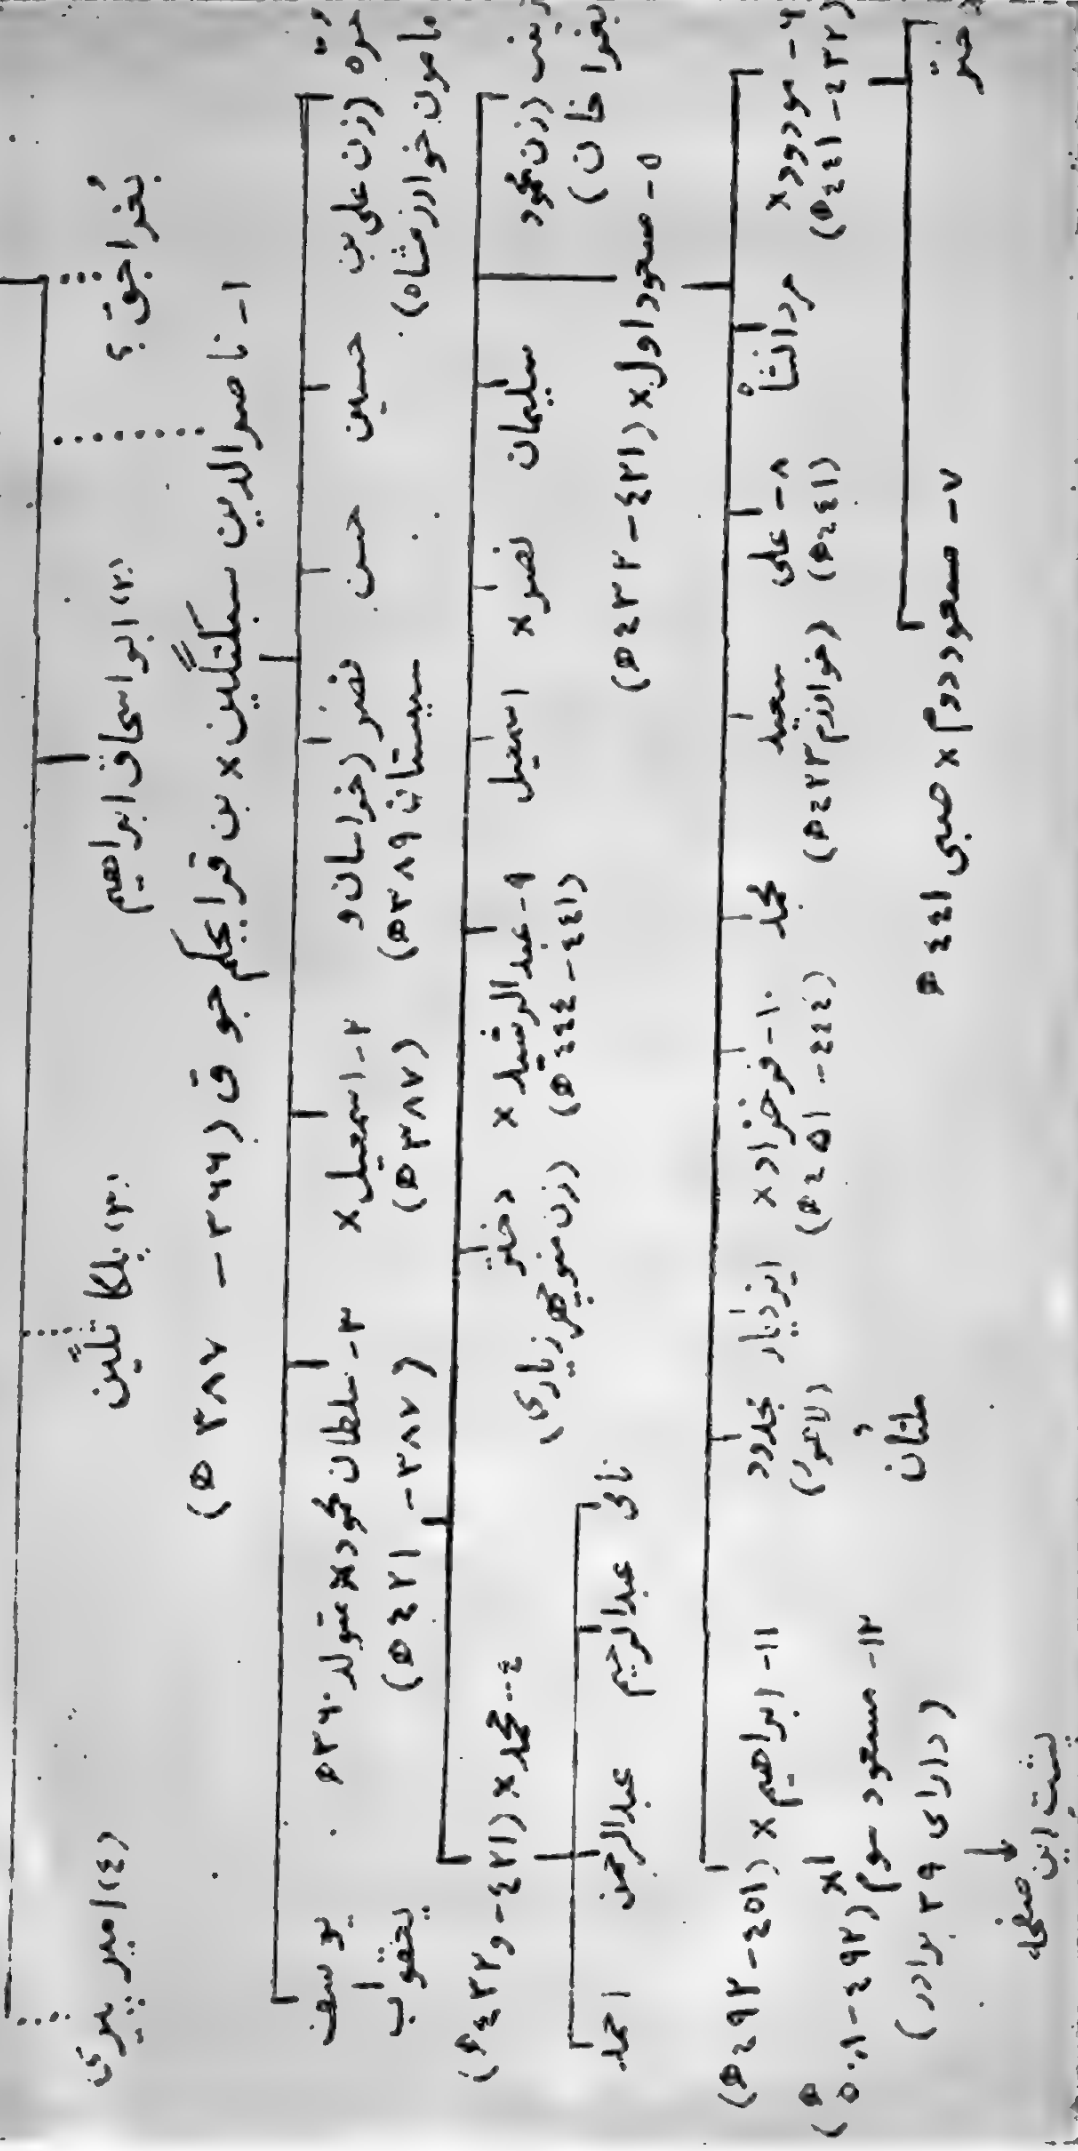 بغراجق ؟
(۲) ابواسحاق ابراهیم
(۳) بلکا تگین
(٤) امیر پیری
۱- ناصرالدین سبکتگین × بن قرابجکم جوق (۳۶۶ - ۳۸۷ ه)
حره (زن علی بن
مامون خوارزمشاه)
حسین
حسن
نصر (خراسان و
سیستان ۳۸۹ ه)
۲- اسمعیل ×
(۳۸۷ ه)
۳- سلطان محمود × متولد ۳۶۰ ه
(۳۸۷ - ٤۲۱ ه)
یوسف
یعقوب
زینب (زن محمود
بغرا خان)
۵- مسعود اول × (٤۲۱ - ٤۳۲ ه)
سلیمان
نصر ×
اسمعیل
۹- عبدالرشید ×
(٤٤۱ - ٤٤٤ ه)
دختر
(زن منوچهر زیاری)
٤- محمد × (٤۲۱ - و ٤۳۲ ه)
نامی
عبدالرحیم
عبدالرحمن
احمد
۶- مودود ×
(٤۳۲ - ٤٤۱ ه)
مردانشاه
۸- علی
(٤٤۱ ه)
سعید
(خوارزم ٤۲۳ ه)
محمد
۱۰- فرخزاد ×
(٤٤٤ - ٤۵۱ ه)
ایزدیار
مجدود
(لاهور)
و
ملتان
۱۱- ابراهیم × (٤۵۱ - ٤۹۲ ه)
۱۲- مسعود سوم × (٤۹۲ - ۵۰۸ ه)
(دارای ۳۹ برادر)
دختر
۷- مسعود دوم × صبی ٤٤۱ ه
پشت این
صفحه